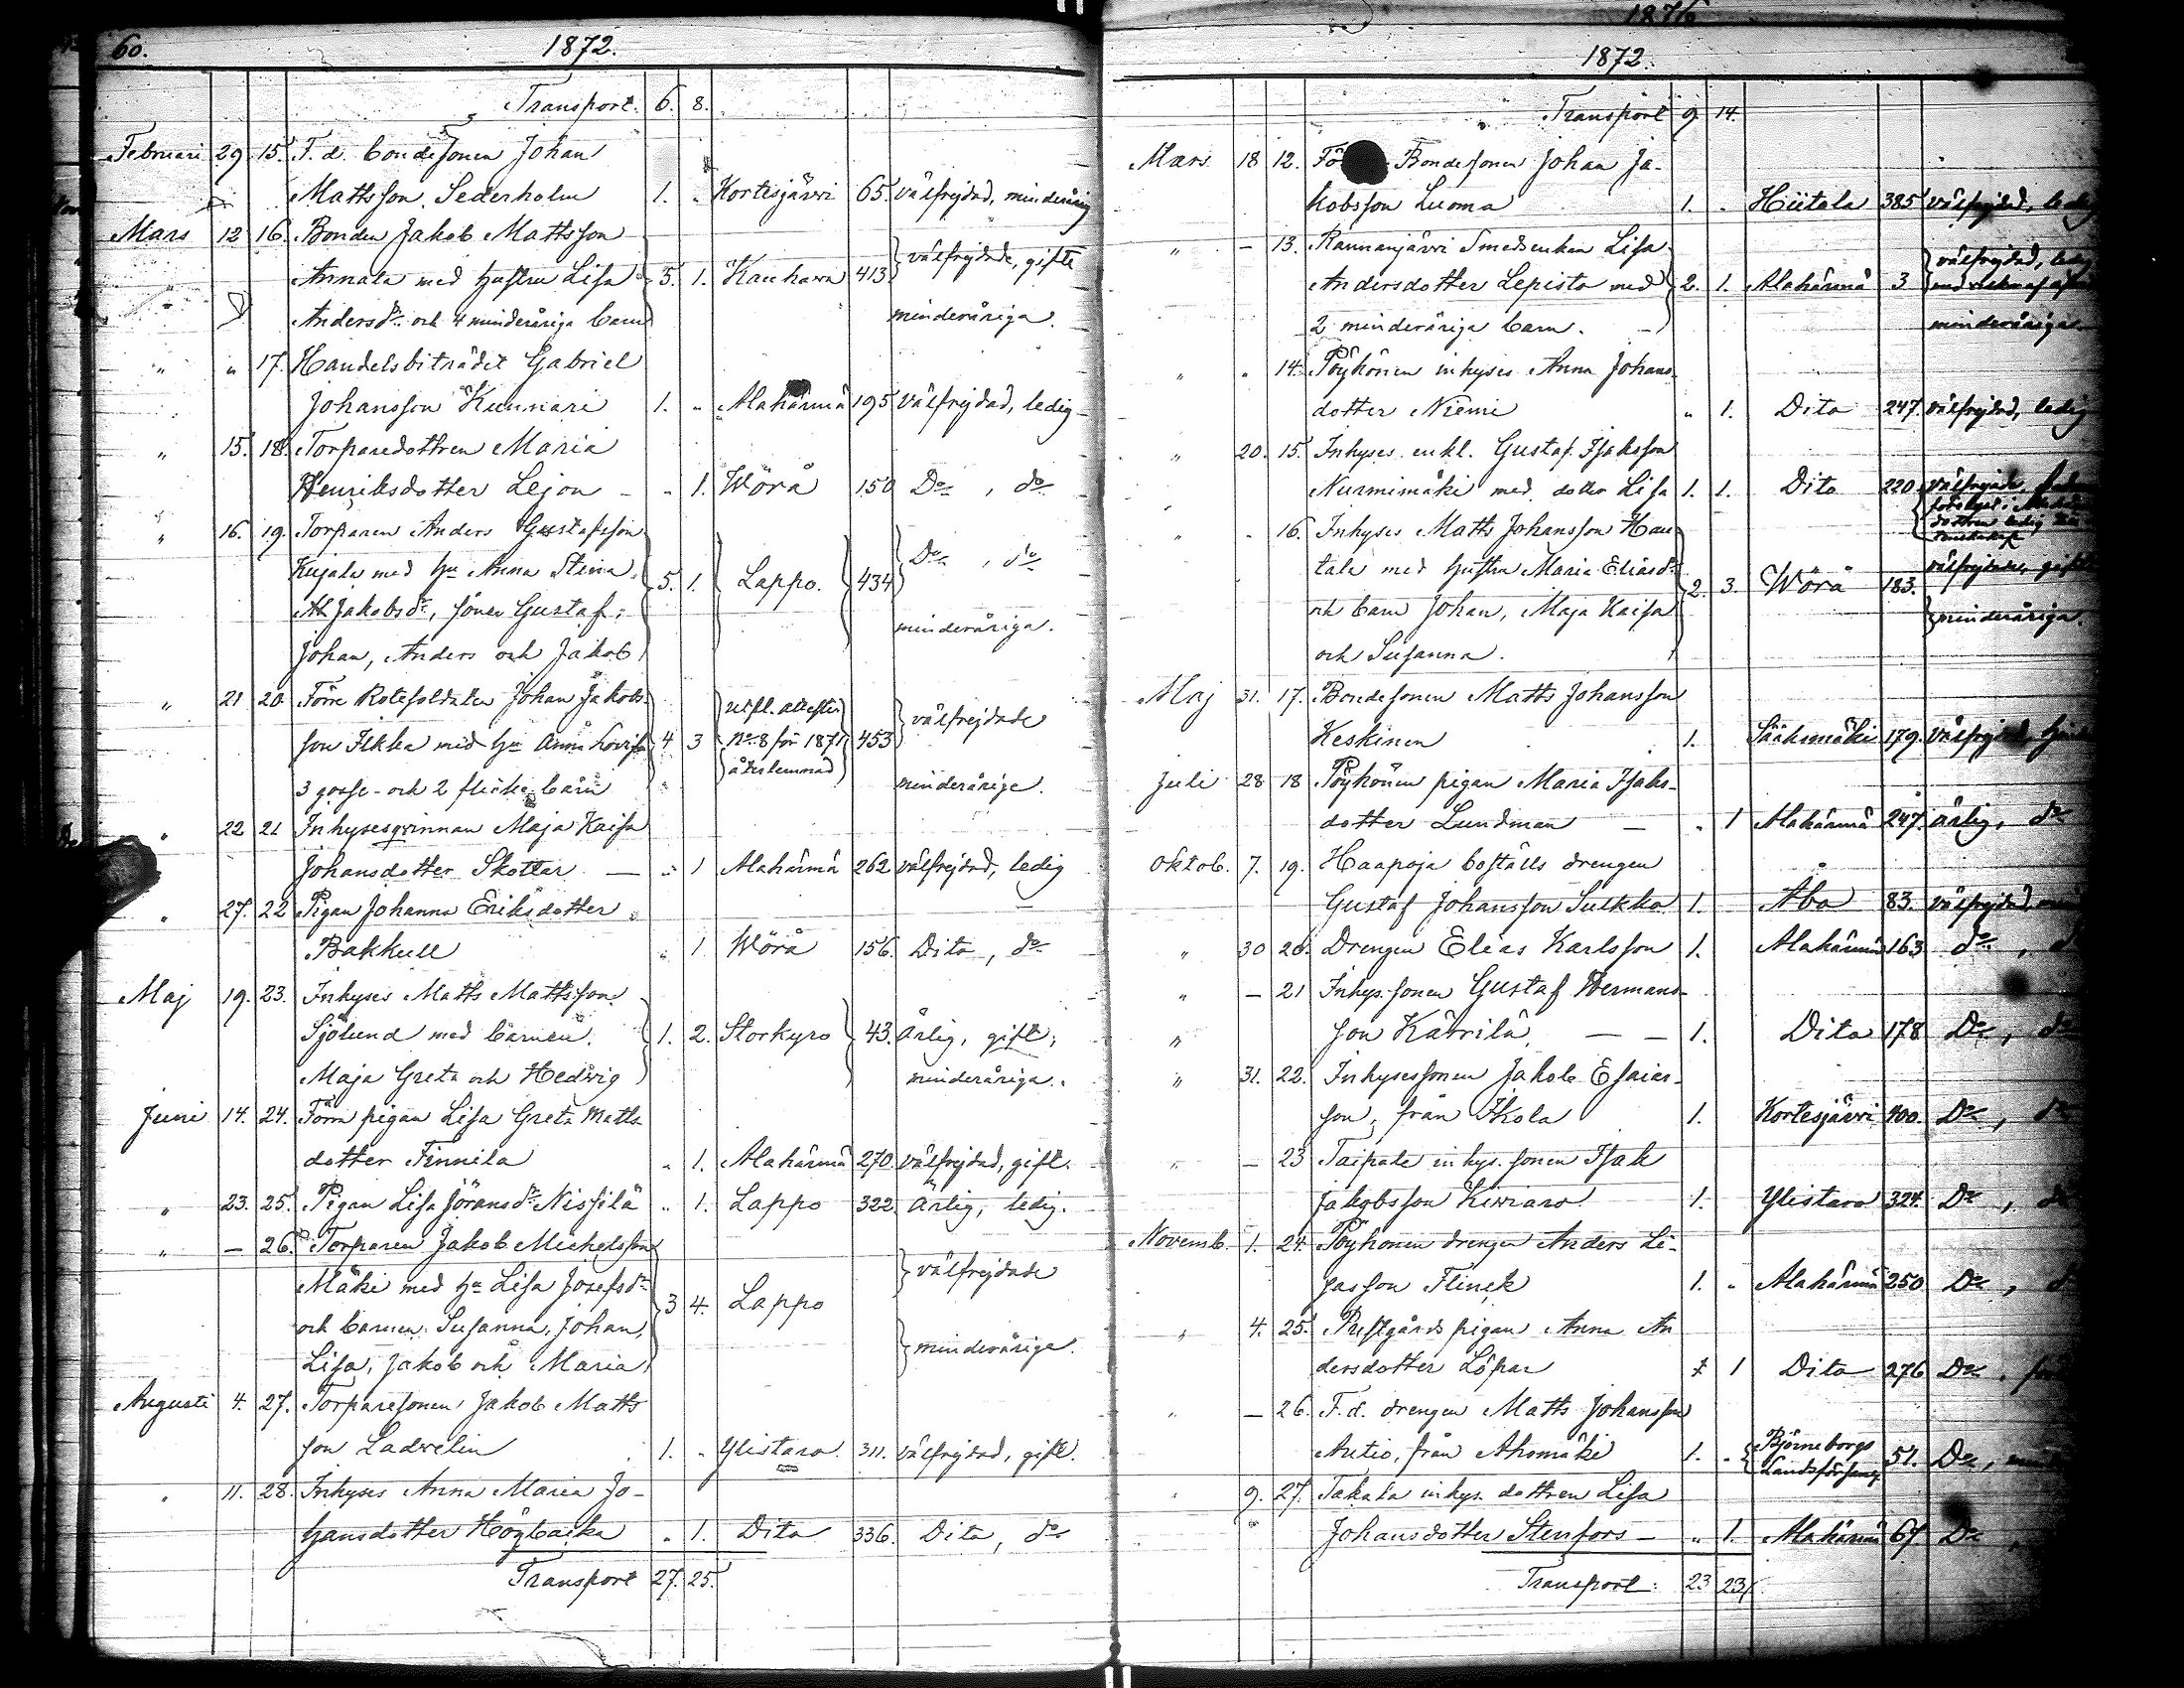 60. 1872.
Transport. 6. 8.
Februari 29 15. F. d. bondesonen Johan
Mattsson Sederholm 1. „ Kortesjärvi 65. välfrejdad, minderårig
Mars 12 16. Bonden Jakob Mattsson
Annala med hustru Lisa 5. 1. Kauhava 413 välfrejdade, gifte
Andersdr och 4 minderåriga barn minderåriga.
„ „ 17. Handelsbiträdet Gabriel
Johansson Kunnari 1. „ Alahärmä 195 välfrejdad, ledig
„ 15. 18. Torparedottren Maria
Henriksdotter Lejon - „ 1. Wörå 150 Do , do
„ 16. 19. Torparen Anders Gustafsson
Kujala med hu Anna Stina 5. 1. Lappo. 434 Do , do
Jakobsdr, söner Gustaf, minderåriga.
Johan, Anders och Jakob
„ 21 20. Förre Rotesoldaten Johan Jakobs-
son Ikkla med hu Anna Lovisa 4 3 No 8 för 1871 453 välfrejdade
återlemnad
3 gosse- och 2 flicke barn minderårige.
„ 22 21 Inhysesqvinnan Maja Kaisa
Johansdotter Skottar — „ 1 Alahärmä 262 välfrejdad, ledig
„ 27. 22 Pigan Johanna Eriksdotter
Bakkull „ 1 Wörå 156. Dito, do
Maj 19. 23. Inhyses Matts Mattsson
Sjölund med barnen 1. 2. Storkyro 43. Ärlig, gift,
Maja Greta och Hedwig minderåriga.
Juni 14. 24. Förra pigan Lisa Greta Matts-
dotter Finnila „ 1. Alahärmä 270. välfrejdad, gift.
„ 23. 25. Pigan Lisa Jöransdr Nissilä „ 1. Lappo 322. Ärlig, ledig.
„ — 26. Torparen Jakob Michelsson
Mäki med hu Lisa Josefsdr 3 4. Lappo välfrejdade
och barnen Susanna, Johan,
Lisa, Jakob och Maria minderåriga.
Augusti 4. 27. Torparesonen Jakob Matts
son Ladvelin 1. „ Ylistaro. 311. välfrejdad, gift.
„ 11. 28. Inhyses Anna Maria Jo-
hansdotter Högbacka „ 1. Dito 336. Dito, do
Transport 27. 25.
1876
1872.
Transport 9 14.
Mars 18 12. Bondesonen Johan Ja-
kobsson Luoma 1. „ Hiitola 385 välfrejdad,
„ — 13. Rannanjärvi Smedsenkan Lisa
Andersdotter Lepisto med 2. 1. Alahärmä 3 välfrejdad,
2 minderåriga barn. minderåriga
„ „ 14. Pöyhönen inhyses Anna Johans-
dotter Niemi „ 1. Dito 247. välfrejdad, ledig
„ 20. 15. Inhyses enkl. Gustaf Isaksson
Nurmimäki med dotter Lisa 1. 1. Dito 220
dottren ledig
„ „ 16. Inhyses Matts Johansson Hau-
tala med hustru Maria Eliasdr 2. 3. Wörå 183. välfrejdade,
och barn Johan, Maja Kaisa minderåriga.
och Susanna.
Maj 31. 17. Bondesonen Matts Johansson
Keskinen 1. Sääksmäki 179. välfrejdad,
Juli 28 18 Pöyhönen pigan Maria Isaks-
dotter Lundman — „ 1 Alahärmä 247. ärlig, do
Oktob. 7. 19. Haapoja boställs drengen
Gustaf Johansson Sulkko 1. Åbo 83. välfrejdad,
„ 30 20. Drengen Elias Karlsson 1. Alahärmä 163 do,
„ — 21 Inhys. sonen Gustaf Hermans-
„ son Kärrilä — — 1. Dito 178 Do, do
„ 31. 22. Inhysessonen Jakob Esaias-
son, från Ekola 1. Kortesjärvi 400. Do, do
„ — 23 Taipale inhys. sonen Isak
Jakobsson Kiviaro 1. Ylistaro 324. Do,
Novemb. 1. 24. Pöyhönen drengen Anders Li-
sasson Flinck 1. „ Alahärmä 250 Do,
„ 4. 25. Prestgårds pigan Anna An
dersdotter Löpar 1 Dito 276 Do.
„ — 26. F. d. drengen Matts Johansson
Autio, från Ahomäki 1. „ Björneborgs 51. Do,
Landsförsaml
„ 9. 27. Takala inhys. dottren Lisa
Johansdotter Stenfors — „ 1. Alahärmä 67 Do
Transport. 23 23